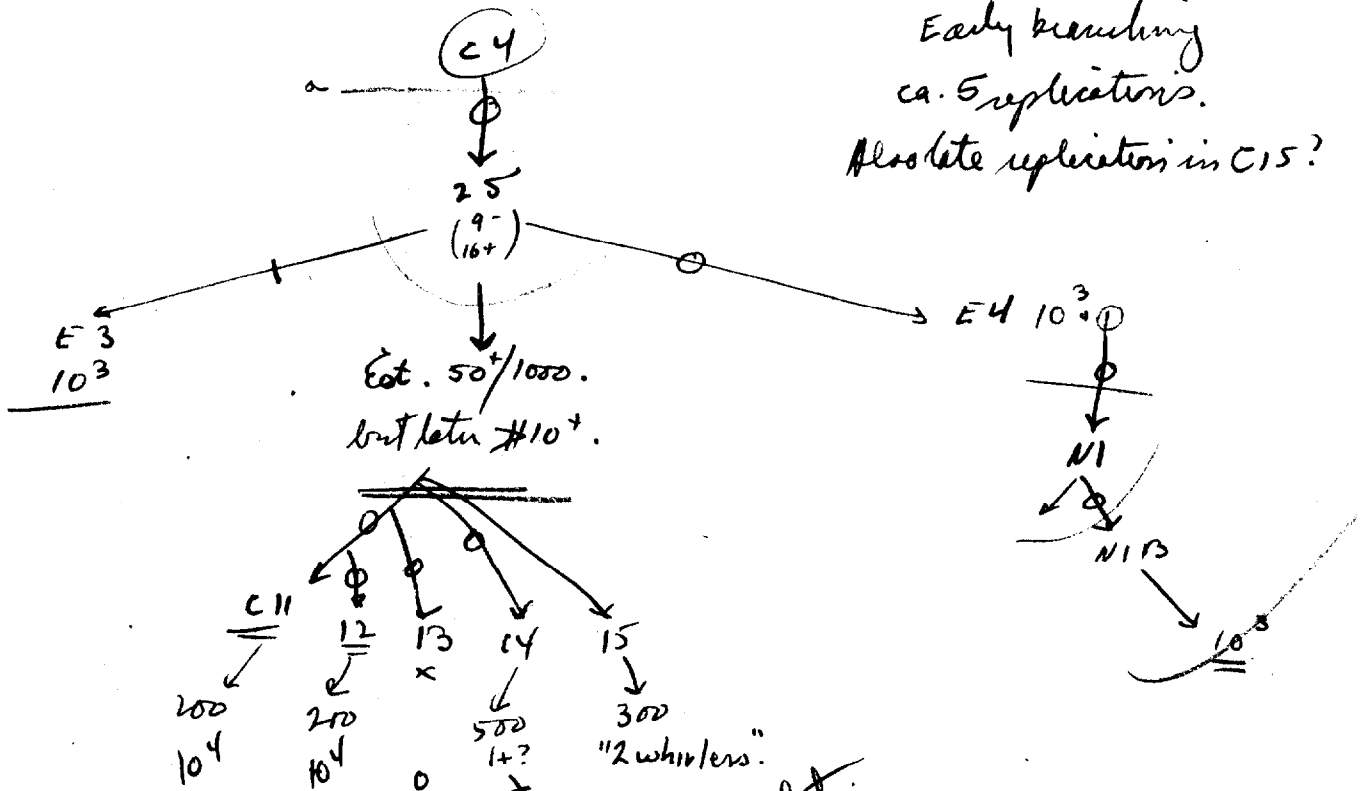 C 4
Early branching
ca. 5 replications.
Also late replication in C15?
a
25
(9-
16+)
E 3
10³
E4 10³.1
Est. 50⁺/1000.
but later #10⁺.
N1
N1B
10³
C11
12
13
14
15
x
200
200
500
300
10⁴
10⁴
1+?
"2 whirlers".
0